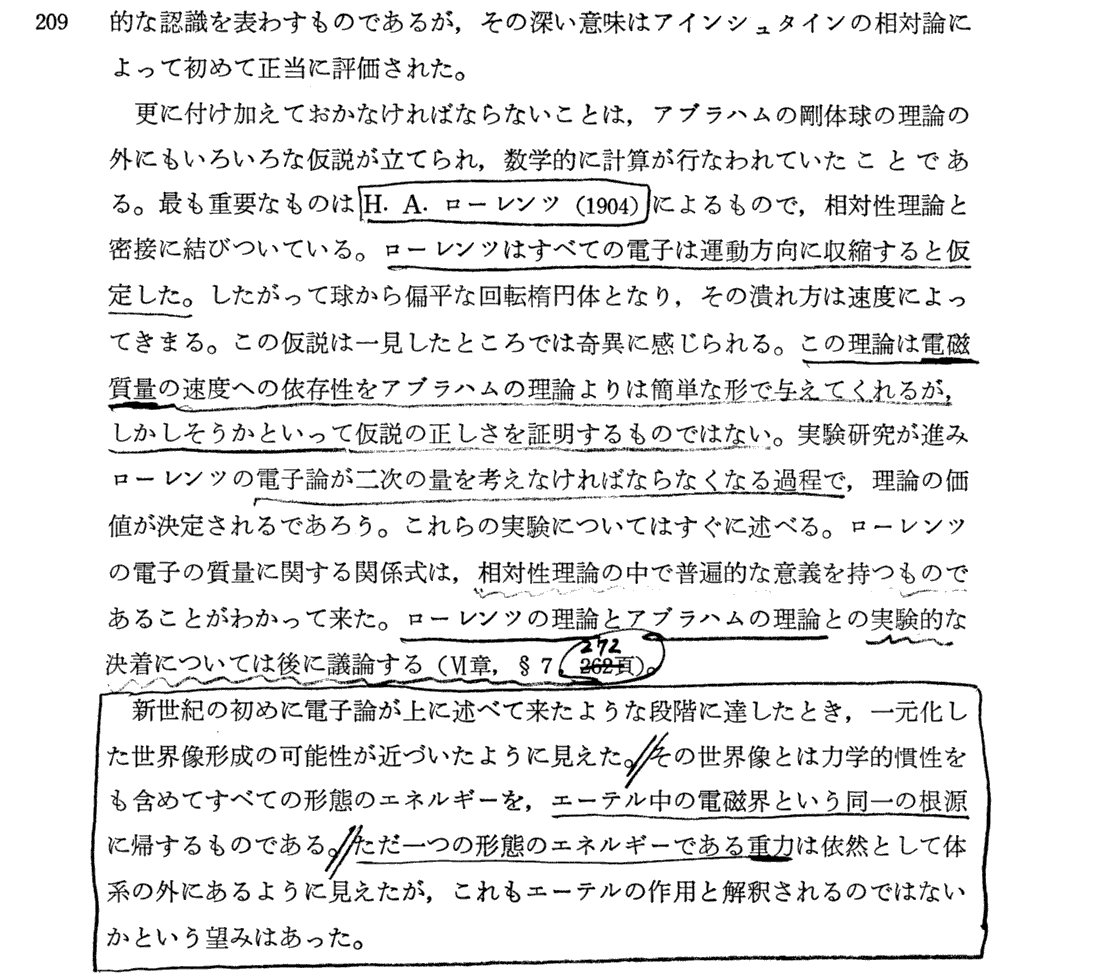 209 的な認識を表わすものであるが，その深い意味はアインシュタインの相対論に
よって初めて正当に評価された。
更に付け加えておかなければならないことは，アブラハムの剛体球の理論の
外にもいろいろな仮説が立てられ，数学的に計算が行なわれていたことであ
る。最も重要なものはH. A. ローレンツ（1904）によるもので，相対性理論と
密接に結びついている。ローレンツはすべての電子は運動方向に収縮すると仮
定した。したがって球から偏平な回転楕円体となり，その潰れ方は速度によっ
てきまる。この仮説は一見したところでは奇異に感じられる。この理論は電磁
質量の速度への依存性をアブラハムの理論よりは簡単な形で与えてくれるが，
しかしそうかといって仮説の正しさを証明するものではない。実験研究が進み
ローレンツの電子論が二次の量を考えなければならなくなる過程で，理論の価
値が決定されるであろう。これらの実験についてはすぐに述べる。ローレンツ
の電子の質量に関する関係式は，相対性理論の中で普遍的な意義を持つもので
あることがわかって来た。ローレンツの理論とアブラハムの理論との実験的な
272
決着については後に議論する（Ⅵ章，§7，262頁）。
新世紀の初めに電子論が上に述べて来たような段階に達したとき，一元化し
た世界像形成の可能性が近づいたように見えた。その世界像とは力学的慣性を
も含めてすべての形態のエネルギーを，エーテル中の電磁界という同一の根源
に帰するものである。ただ一つの形態のエネルギーである重力は依然として体
系の外にあるように見えたが，これもエーテルの作用と解釈されるのではない
かという望みはあった。